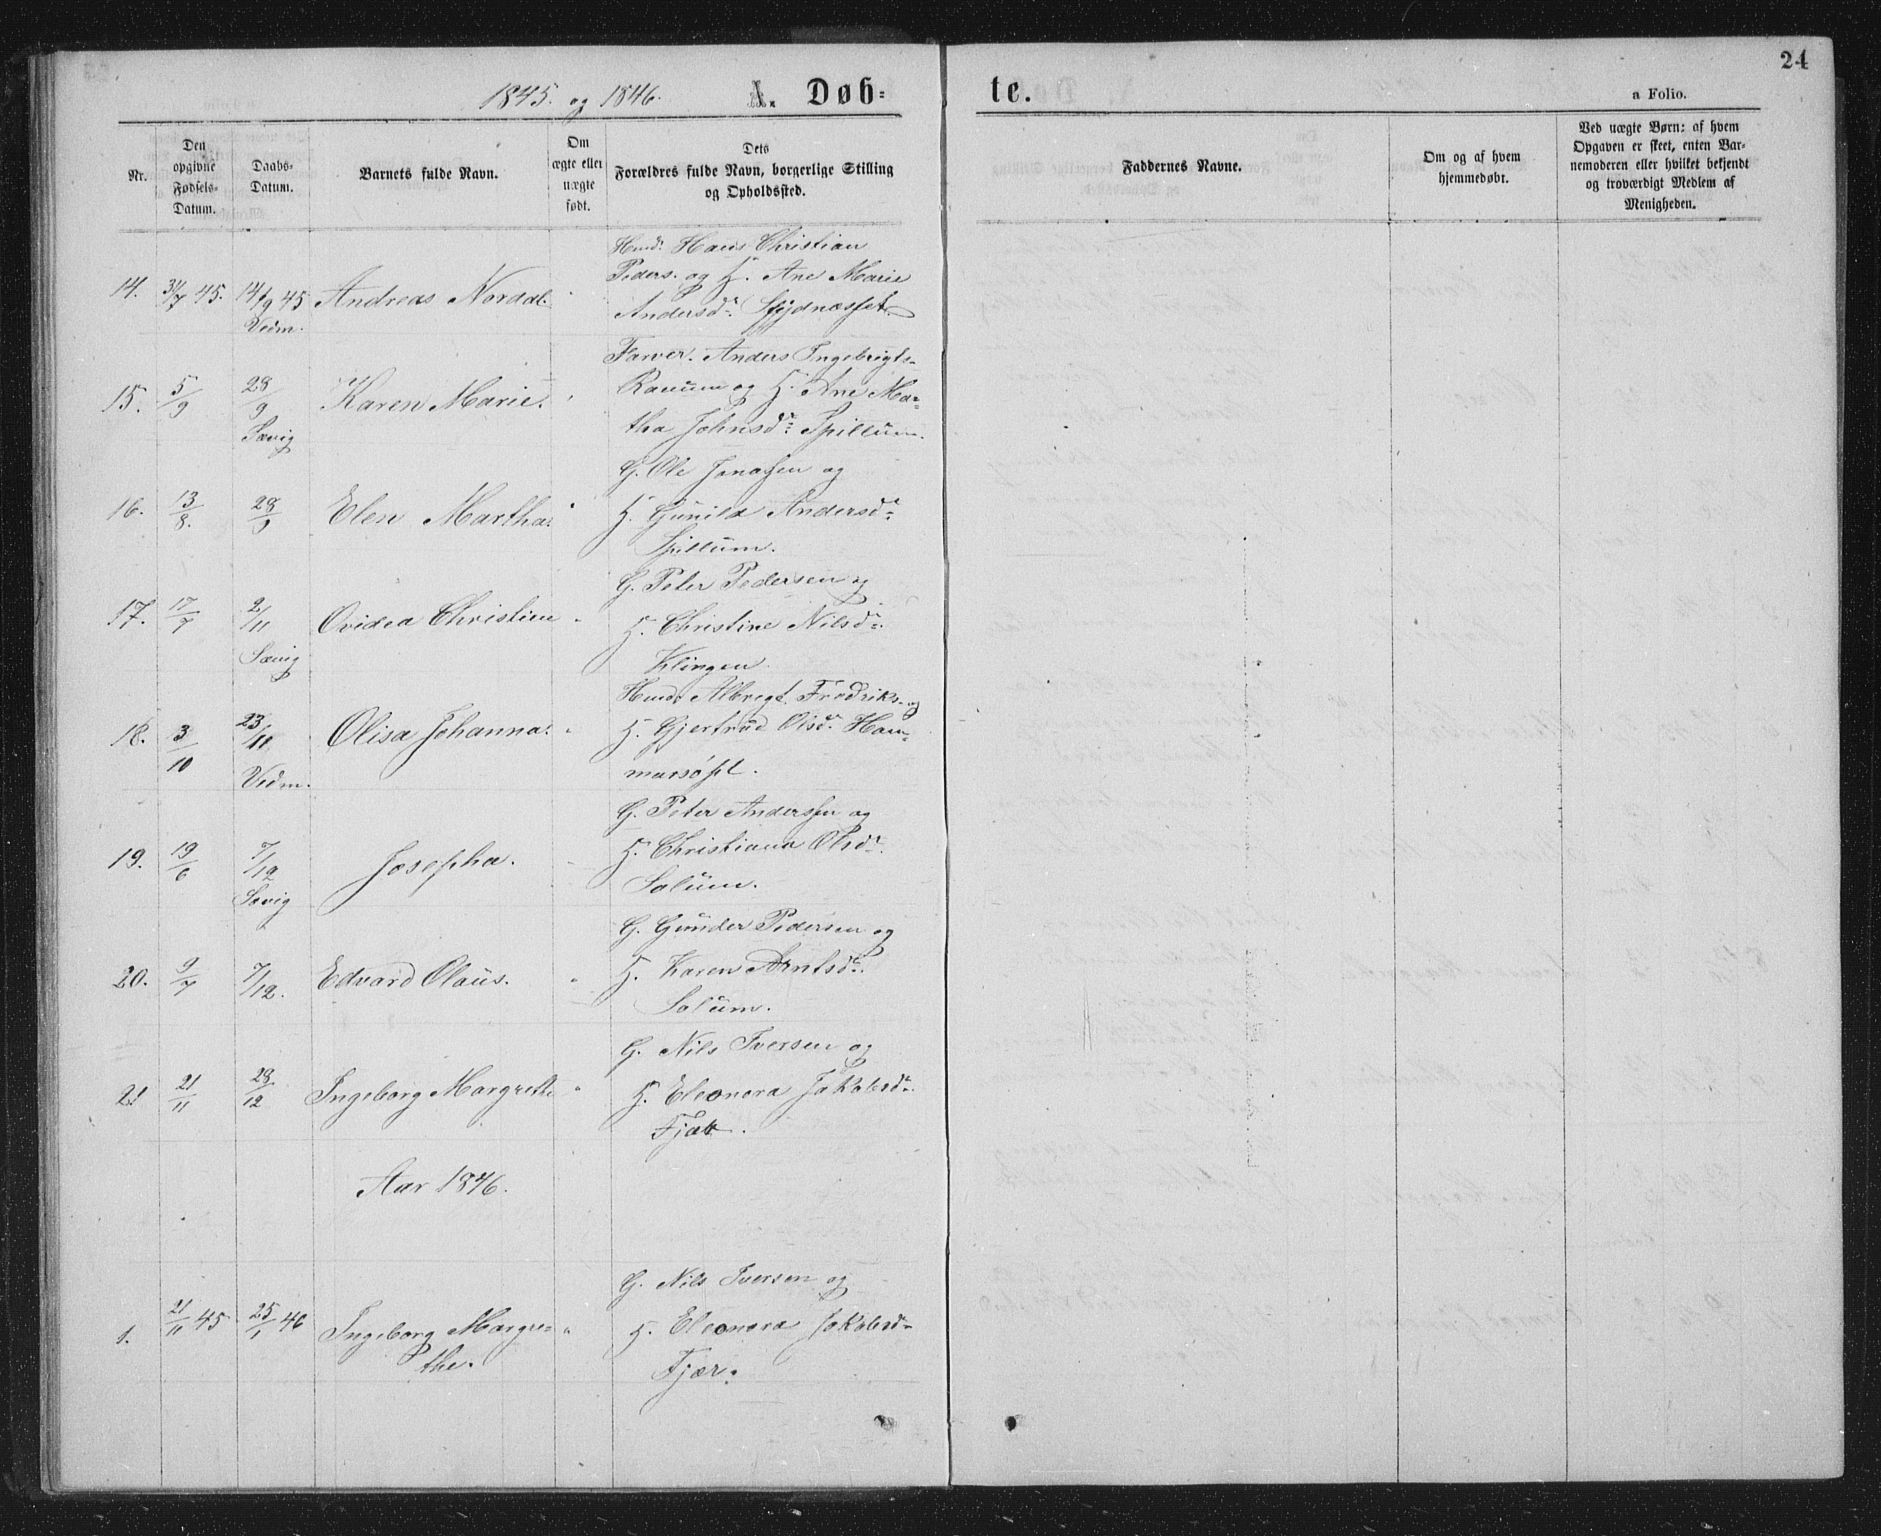 24
1845. og 1846. A. Døb-te.
a Folio.
Nr.
Den opgivne Fødsels-Datum.
Daabs-Datum.
Barnets fulde Navn.
Om ægte eller uægte født.
Dets Forældres fulde Navn, borgerlige Stilling og Opholdssted.
Faddernes Navne.
Om og af hvem hjemmedøbt.
Ved uægte Børn: af hvem Opgaven er skeet, enten Barnemoderen eller hvilket bekjendt og troværdigt Medlem af Menigheden.
Hmd. Hans Christian
Peders. og H. Ane Marie
14. 31/7 45. 14/9 45 Andreas Nordal. Andersdr.
Vedm.
Farver. Anders Ingebrigts-
Ranum og H. Ane Ma-
15. 5/9 28/9 Karen Marie. tha Johnsdr. Spillum.
Sævig
G. Ole Jonassen og
16. 13/8. 28/9 Elen Martha. H. Gunild Andersdr.
Spillum.
G. Peter Pedersen og
17. 17/7 2/11 Ovidea Christien H. Christine Nilsdr.
Sævig Klingen.
Hmd. Albregt Fredriks. og
18. 3/10 23/11 Olisa Johanna. H. Gjertrud Olsdr. Ham-
Vedm. marsøfal.
G. Peter Anderssen og
19. 19/6 7/12 Josepha. H. Christiana Olsdr.
Sævig Solum.
G. Gunder Pedersen og
20. 9/7 7/12. Edvard Olaus. H. Karen Arntsdr.
Solum.
G. Nils Iversen og
21 21/11 28/12 Ingeborg Margrethe H. Eleonora Jakobsdr.
Fjær.
Aar 1846.
G. Nils Iversen og
1. 21/11 45 25/1 46 Ingeborg Margre- H. Eleonora Jakobsdr
the. Fjær.